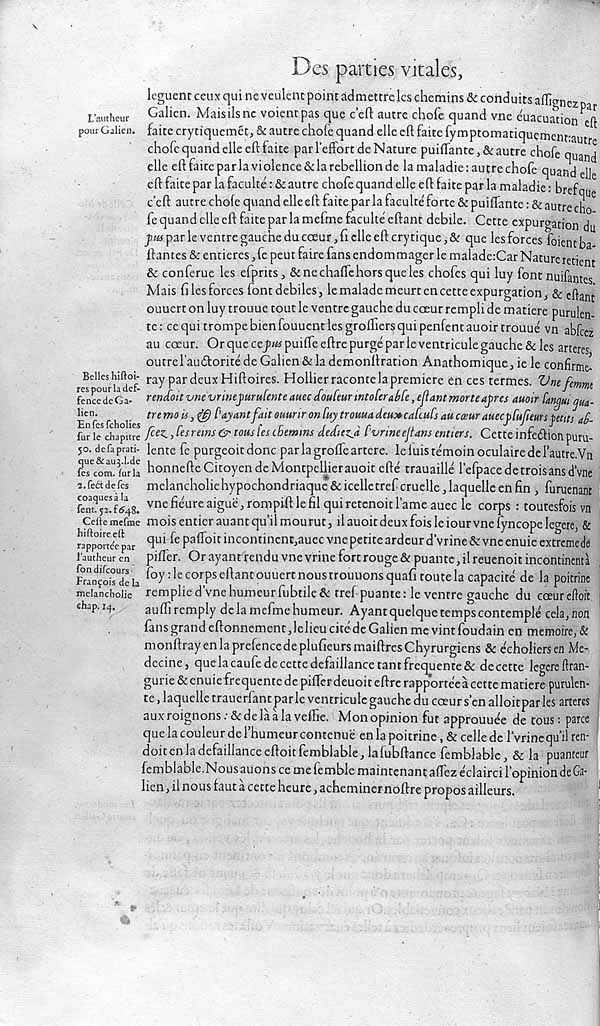 Des parties vitales,
leguent ceux qui ne veulent point admettre les chemins & conduits aſſignez par
Galien. Mais ils ne voient pas que c'eſt autre choſe quand vne éuacuation eſt
faite crytiquemẽt, & autre choſe quand elle eſt faite ſymptomatiquement: autre
choſe quand elle eſt faite par l'effort de Nature puiſſante, & autre choſe quand
elle eſt faite par la violence & la rebellion de la maladie: autre choſe quand elle
eſt faite par la faculté: & autre choſe quand elle eſt faite par la maladie: bref que
c'eſt autre choſe quand elle eſt faite par la faculté forte & puiſſante: & autre cho-
ſe quand elle eſt faite par la meſme faculté eſtant debile. Cette expurgation du
pus par le ventre gauche du cœur, ſi elle eſt crytique, & que les forces ſoient ba-
ſtantes & entieres, ſe peut faire ſans endommager le malade: Car Nature retient
& conſerue les eſprits, & ne chaſſe hors que les choſes qui luy ſont nuiſantes.
Mais ſi les forces ſont debiles, le malade meurt en cette expurgation, & eſtant
ouuert on luy trouue tout le ventre gauche du cœur rempli de matiere purulen-
te: ce qui trompe bien ſouuent les groſſiers qui penſent auoir trouué vn abſcez
au cœur. Or que ce pus puiſſe eſtre purgé par le ventricule gauche & les arteres,
outre l'auctorité de Galien & la demonſtration Anathomique, ie le confirme-
ray par deux Hiſtoires. Hollier raconte la premiere en ces termes. Vne femme
rendoit vne vrine purulente auec douleur intolerable, eſtant morte apres auoir langui qua-
tre mois, & l'ayant fait ouurir on luy trouua deux calculs au cœur auec pluſieurs petits ab-
ſcez, les reins & tous les chemins dediez à l'vrine eſtans entiers. Cette infection puru-
lente ſe purgeoit donc par la groſſe artere. Ie ſuis témoin oculaire de l'autre. Vn
honneſte Citoyen de Montpellier auoit eſté trauaillé l'eſpace de trois ans d'vne
melancholie hypochondriaque & icelle treſ-cruelle, laquelle en fin, ſuruenant
vne fiéure aiguë, rompiſt le fil qui retenoit l'ame auec le corps: toutesfois vn
mois entier auant qu'il mourut, il auoit deux fois le iour vne ſyncope legere, &
qui ſe paſſoit incontinent, auec vne petite ardeur d'vrine & vne enuie extreme de
piſſer. Or ayant rendu vne vrine fort rouge & puante, il reuenoit incontinent à
ſoy: le corps eſtant ouuert nous trouuons quaſi toute la capacité de la poitrine
remplie d'vne humeur ſubtile & treſ-puante: le ventre gauche du cœur eſtoit
auſſi remply de la meſme humeur. Ayant quelque temps contemplé cela, non
ſans grand eſtonnement, le lieu cité de Galien me vint ſoudain en memoire, &
monſtray en la preſence de pluſieurs maiſtres Chyrurgiens & écholiers en Me-
decine, que la cauſe de cette defaillance tant frequente & de cette legere ſtran-
gurie & enuie frequente de piſſer deuoit eſtre rapportée à cette matiere purulen-
te, laquelle trauerſant par le ventricule gauche du cœur s'en alloit par les arteres
aux roignons: & de là à la veſſie. Mon opinion fut approuuée de tous: parce
que la couleur de l'humeur contenuë en la poitrine, & celle de l'vrine qu'il ren-
doit en la defaillance eſtoit ſemblable, la ſubſtance ſemblable, & la puanteur
ſemblable. Nous auons ce me ſemble maintenant aſſez éclairci l'opinion de Ga-
lien, il nous faut à cette heure, acheminer noſtre propos ailleurs.
L'autheur
pour Galien.
Belles hiſtoi-
res pour la deſ-
fence de Ga-
lien.
En ſes ſcholies
ſur le chapitre
50. de ſa prati-
que & au 3. l. de
ſes com. ſur la
2. ſect de ſes
coaques à la
ſent. 52. f 648.
Ceſte meſme
hiſtoire eſt
rapportée par
l'autheur en
ſon diſcours
François de la
melancholie
chap. 14.